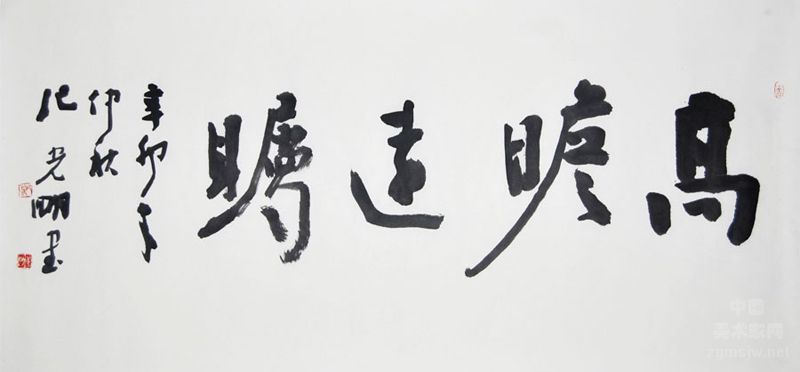 高瞻遠瞩
辛卯年
仲秋
光明书
中国
美术家网
zgmsjw.net